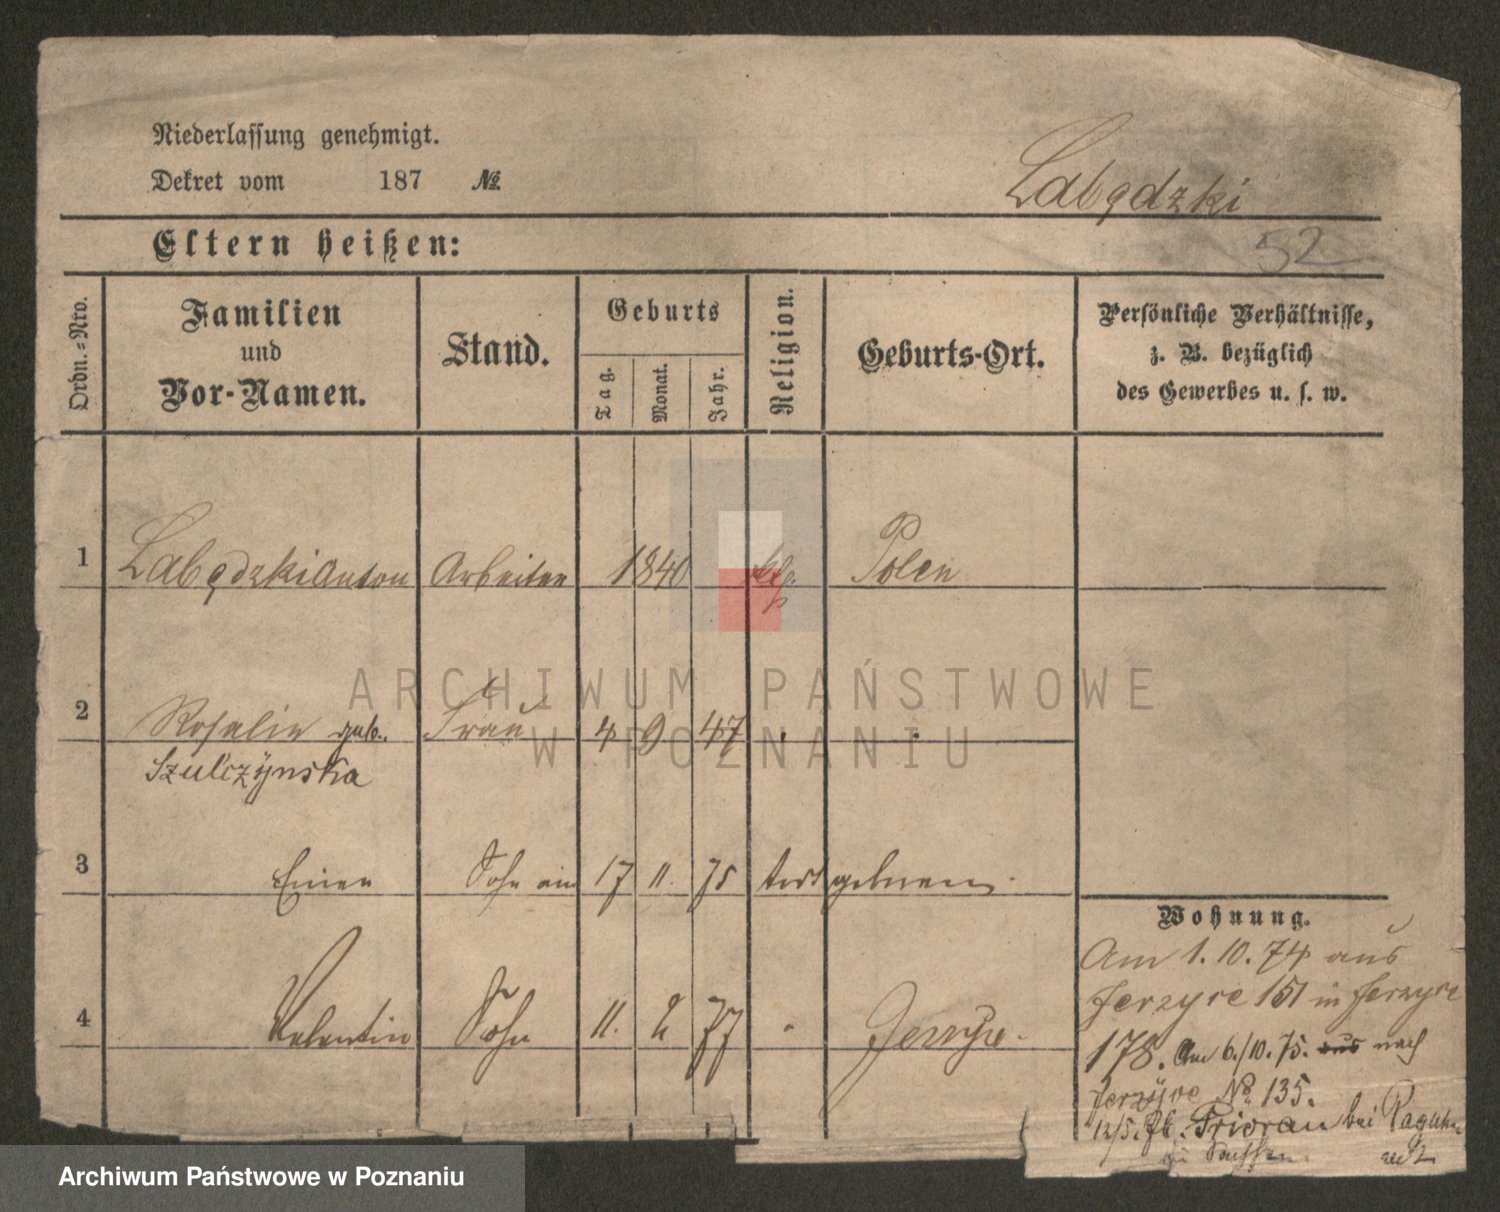 Niederlassung genehmigt.
Dekret vom 187 №
Labędzki
Eltern heißen:
52
Ordn.-Nro.
Familien
und
Vor-Namen.
Stand.
Geburts
Tag.
Monat.
Jahr.
Religion.
Geburts-Ort.
Persönliche Verhältnisse,
z. B. bezüglich
des Gewerbes u. s. w.
1 Labędzki Anton Arbeiter 1840 kth. Polen
2 Rosalie geb. Frau 4 9 47 " "
Szulczÿnska
3 Einen Sohn am 17 11. 75 tot geboren.
4 Valentin Sohn 11. 2 77 " Jerzyce.
Wohnung.
Am 1. 10. 74 aus
Jerzyce 151 in Jerzyce
178. Am 6./10. 75. aus nach
Jerzÿce № 135.
12/5.
bei
ARCHIWUM PAŃSTWOWE
W POZNANIU
Archiwum Państwowe w Poznaniu